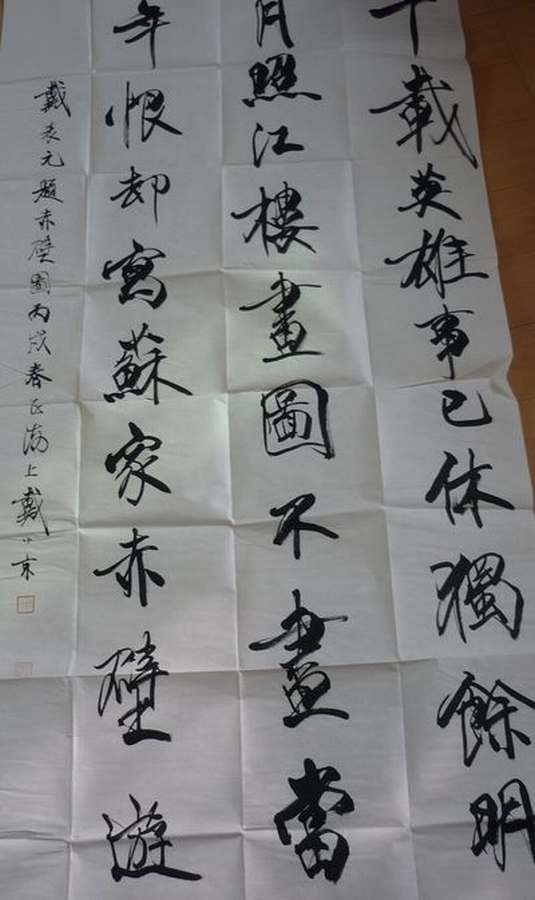 千載英雄事已休獨餘明
月照江樓畫圖不盡當
年恨却寫蘇家赤壁遊
戴表元題赤壁圖丙戌春正海上戴小京